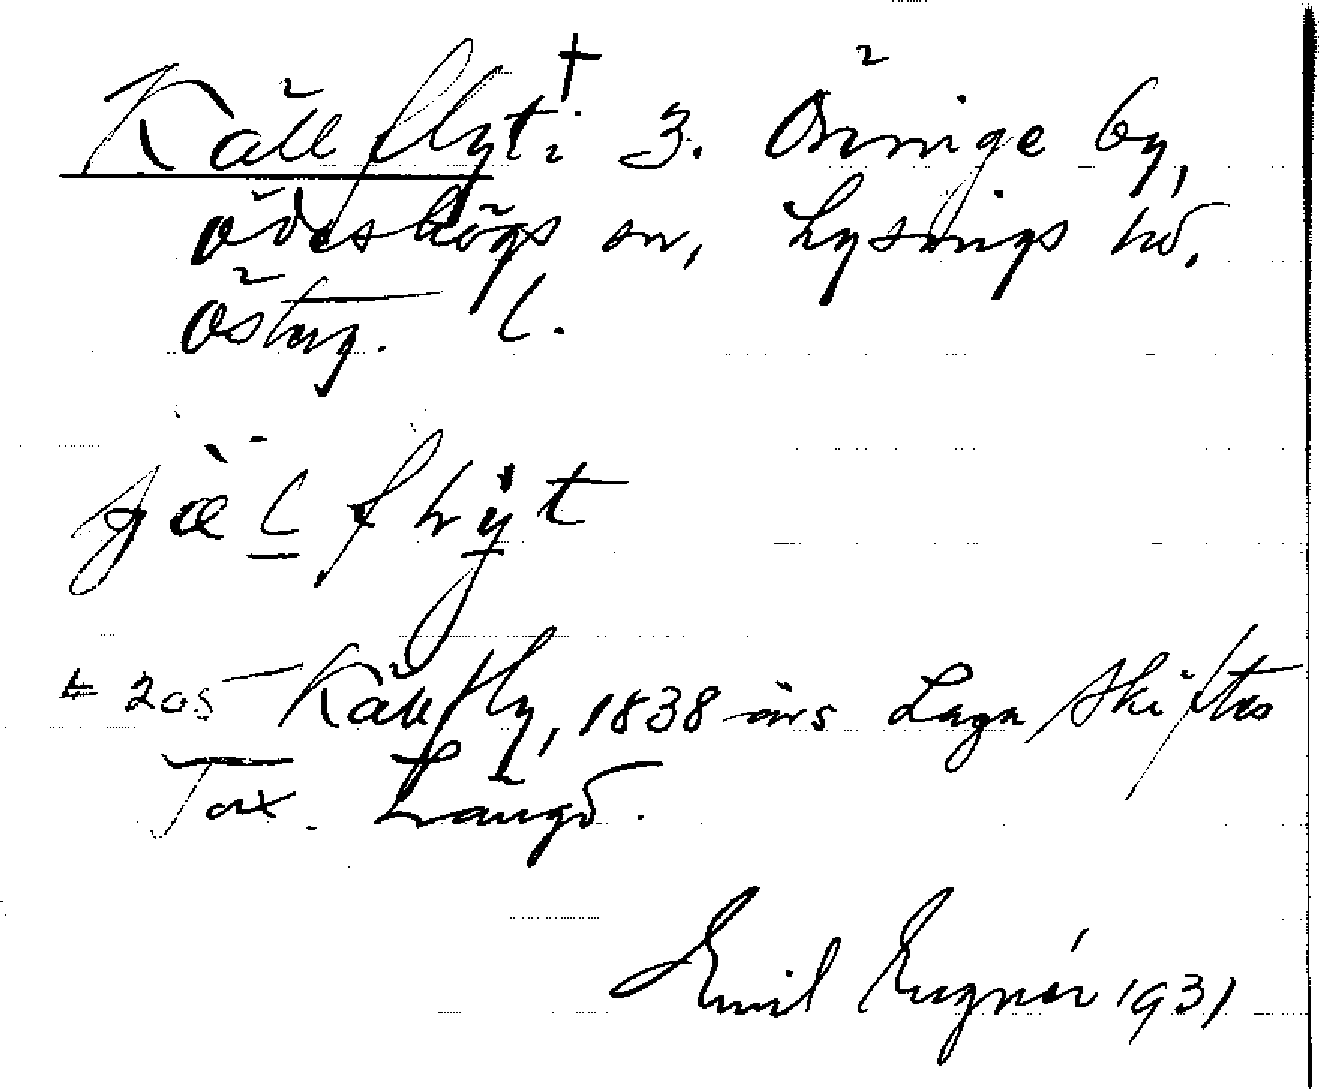 Källflyt: † 3. Öninge by,
Ödeshögs sn, Lysings hd.
Östg. l.
205 Källfly, 1838 års Laga Skiftes
Tax. Längd.
Emil 1931